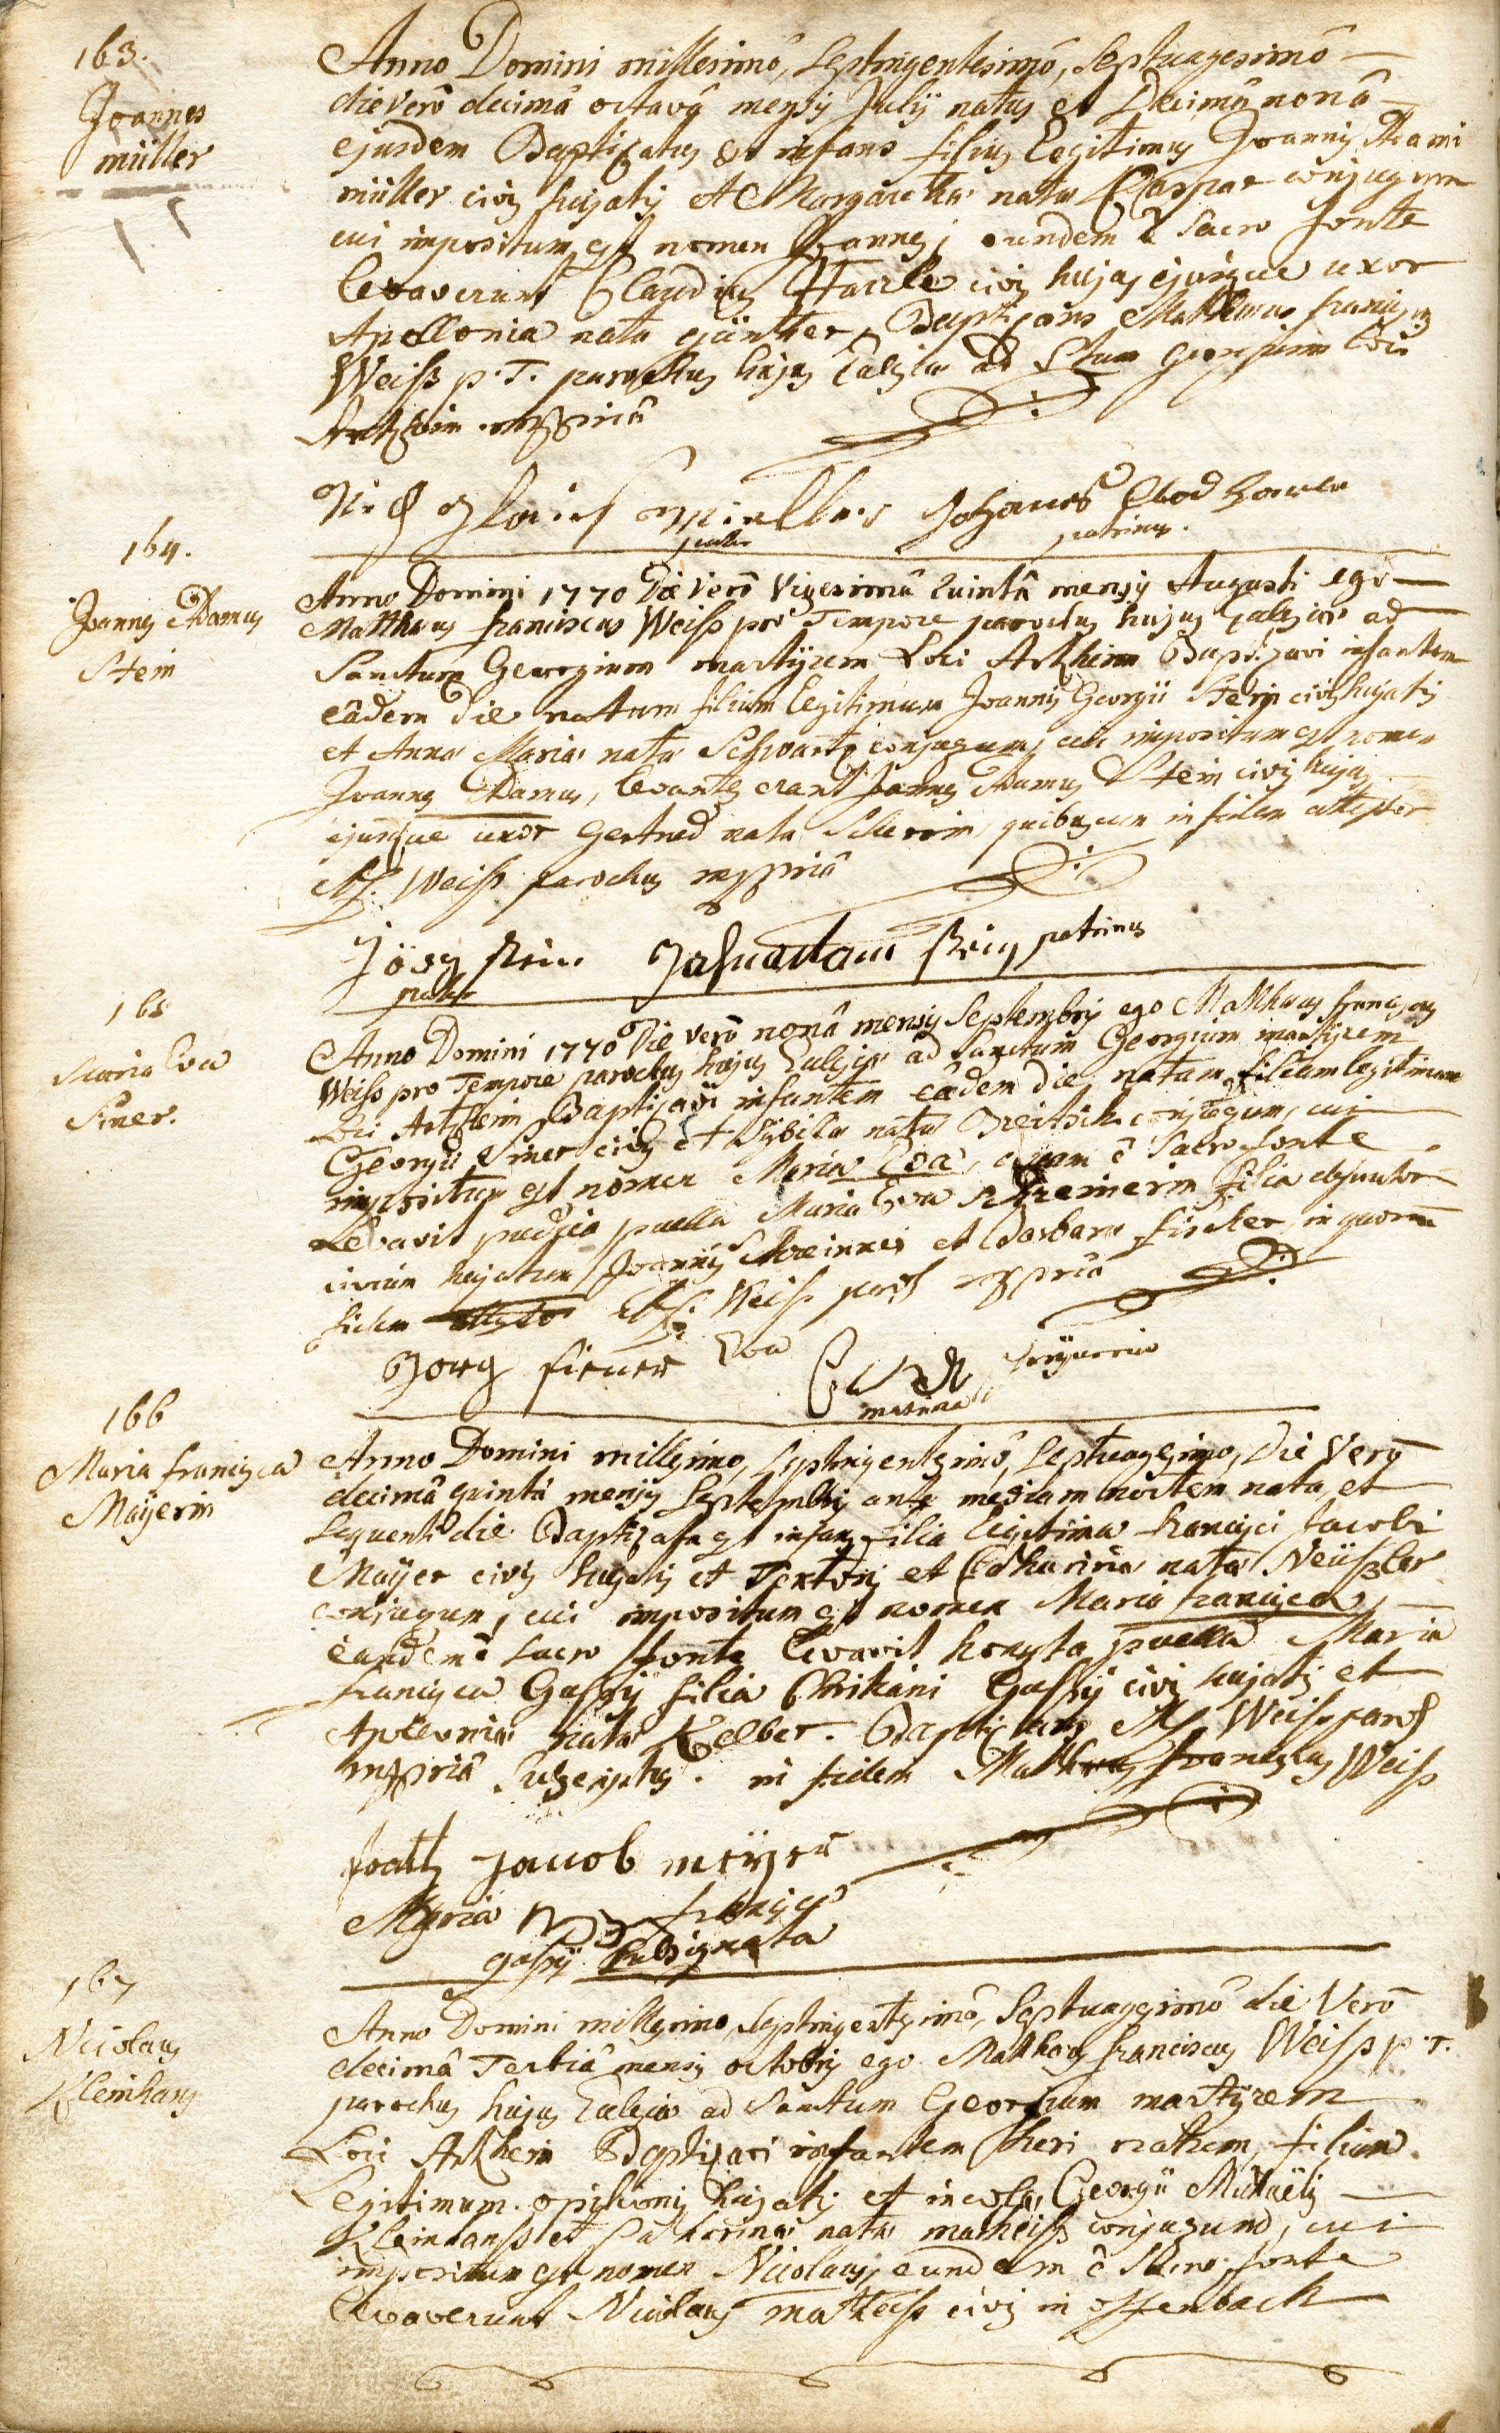 163.
Joannes
müller
Anno Domini millesimô, Septingentesimô, Septuagesimô
die verô decimâ octavâ mensis Julij natus et Decimâ nonâ
ejusdem Baptizatus est infans filius Legitimus Joannis Adami
müller civis hujatis et Margarethæ natæ Caspar conjugum
cui impositum est nomen Joannes, eundem è Sacro fonte
levaverunt Claudius civis hujas ejusque uxor
Apollonia nata günther, Baptizans Matthæus franciscus
Weiß p. T. parochus hujus Eclesiæ ad Stum georgium loci
Artzheim mppriâ
Johannes Clod
pater
patrinus.
164.
Joannes Adamus
Stein
Anno Domini 1770 Die Verô Vigesimâ Quintâ mensis Augusti ego
Matthæus franciscus Weiß pro Tempore parochus hujus Eclesiæ ad
Sanctum Georgium martÿrem Loci Artzheim Baptizavi infantem
eâdem die natum filium legitimum Joannis Georgii Stein civis hujatis
et Annæ Mariæ natæ Schwartz conjugum, cui impositum est nomen
Joannes Adamus, levantes erant Joannes Adamus Stein civis hujas
ejusque uxor Gertrud nata in fidem attestor
Mf. Weiß parochus mppriâ
Jörg Stein Johan adam Stein patrinus
pater
165
Maria Eva
Siner.
Anno Domini 1770 Die verô nonâ mensis Septembris ego Matthæus franciscus
Weiß pro Tempore parochus hujus Eclesiæ ad Sanctum Georgium martÿrem
Loci Artzheim Baptizavi infantem eâdem die natam, filiam legitimam
Georgii Siner civis et Sÿbillæ natæ conjugum, cui
impositum est nomen Maria Eva, quam è Sacro fonte
Levavit pudica puella Maria Eva Schreinerin filia defunctor
civium hujatum Joannis Schreiner et Barbaræ fischer, in quorum
fidem Mf. Weiß paroch mppriâ
Gorg Eva
matrina
166
Maria francisca
Maÿerin
Anno Domini millesimo, Septingentesimô, Septuagesimo, Die Verô
decimâ quintâ mensis Septembris ante mediam noctem nata et
Sequenti die Baptizata est infans filia legitima francisci Jacobi
Maÿer civis hujatis et Textoris et Catharinæ natæ Neüßler
conjugum, cui impositum est nomen Maria francisca,
eandem è Sacro fonte levavit honesta puella Maria
francisca Gassÿ filia Christiani Gassÿ civis hujatis et
Apolloniæ natæ Kelber. Baptizans Mf Weiß paroch
mppriâ Subscriptus. in fidem Matthæus franciscus Weiß
Jacob meÿer
Maria francisca
gassÿ Subsignata
167
Nicolaus
Kleinhans
Anno Domini millesimo, Septingentesimô, Septuagesimô die Verô
decimâ Tertiâ mensis octobris ego Matthæus franciscus Weiß p. T.
parochus hujus Eclesiæ ad Sanctum Georgium martÿrem
Loci Artzheim Baptizavi infantem heri natum, filium
Legitimum opilionis hujatis et incolæ Georgii Michaëlis
Kleinhanß et Catharinæ natæ matheiß conjugum, cui
impositum est nomen Nicolaus, eundem è Sacro fonte
levaverunt Nicolaus matheiß civis in offenbach